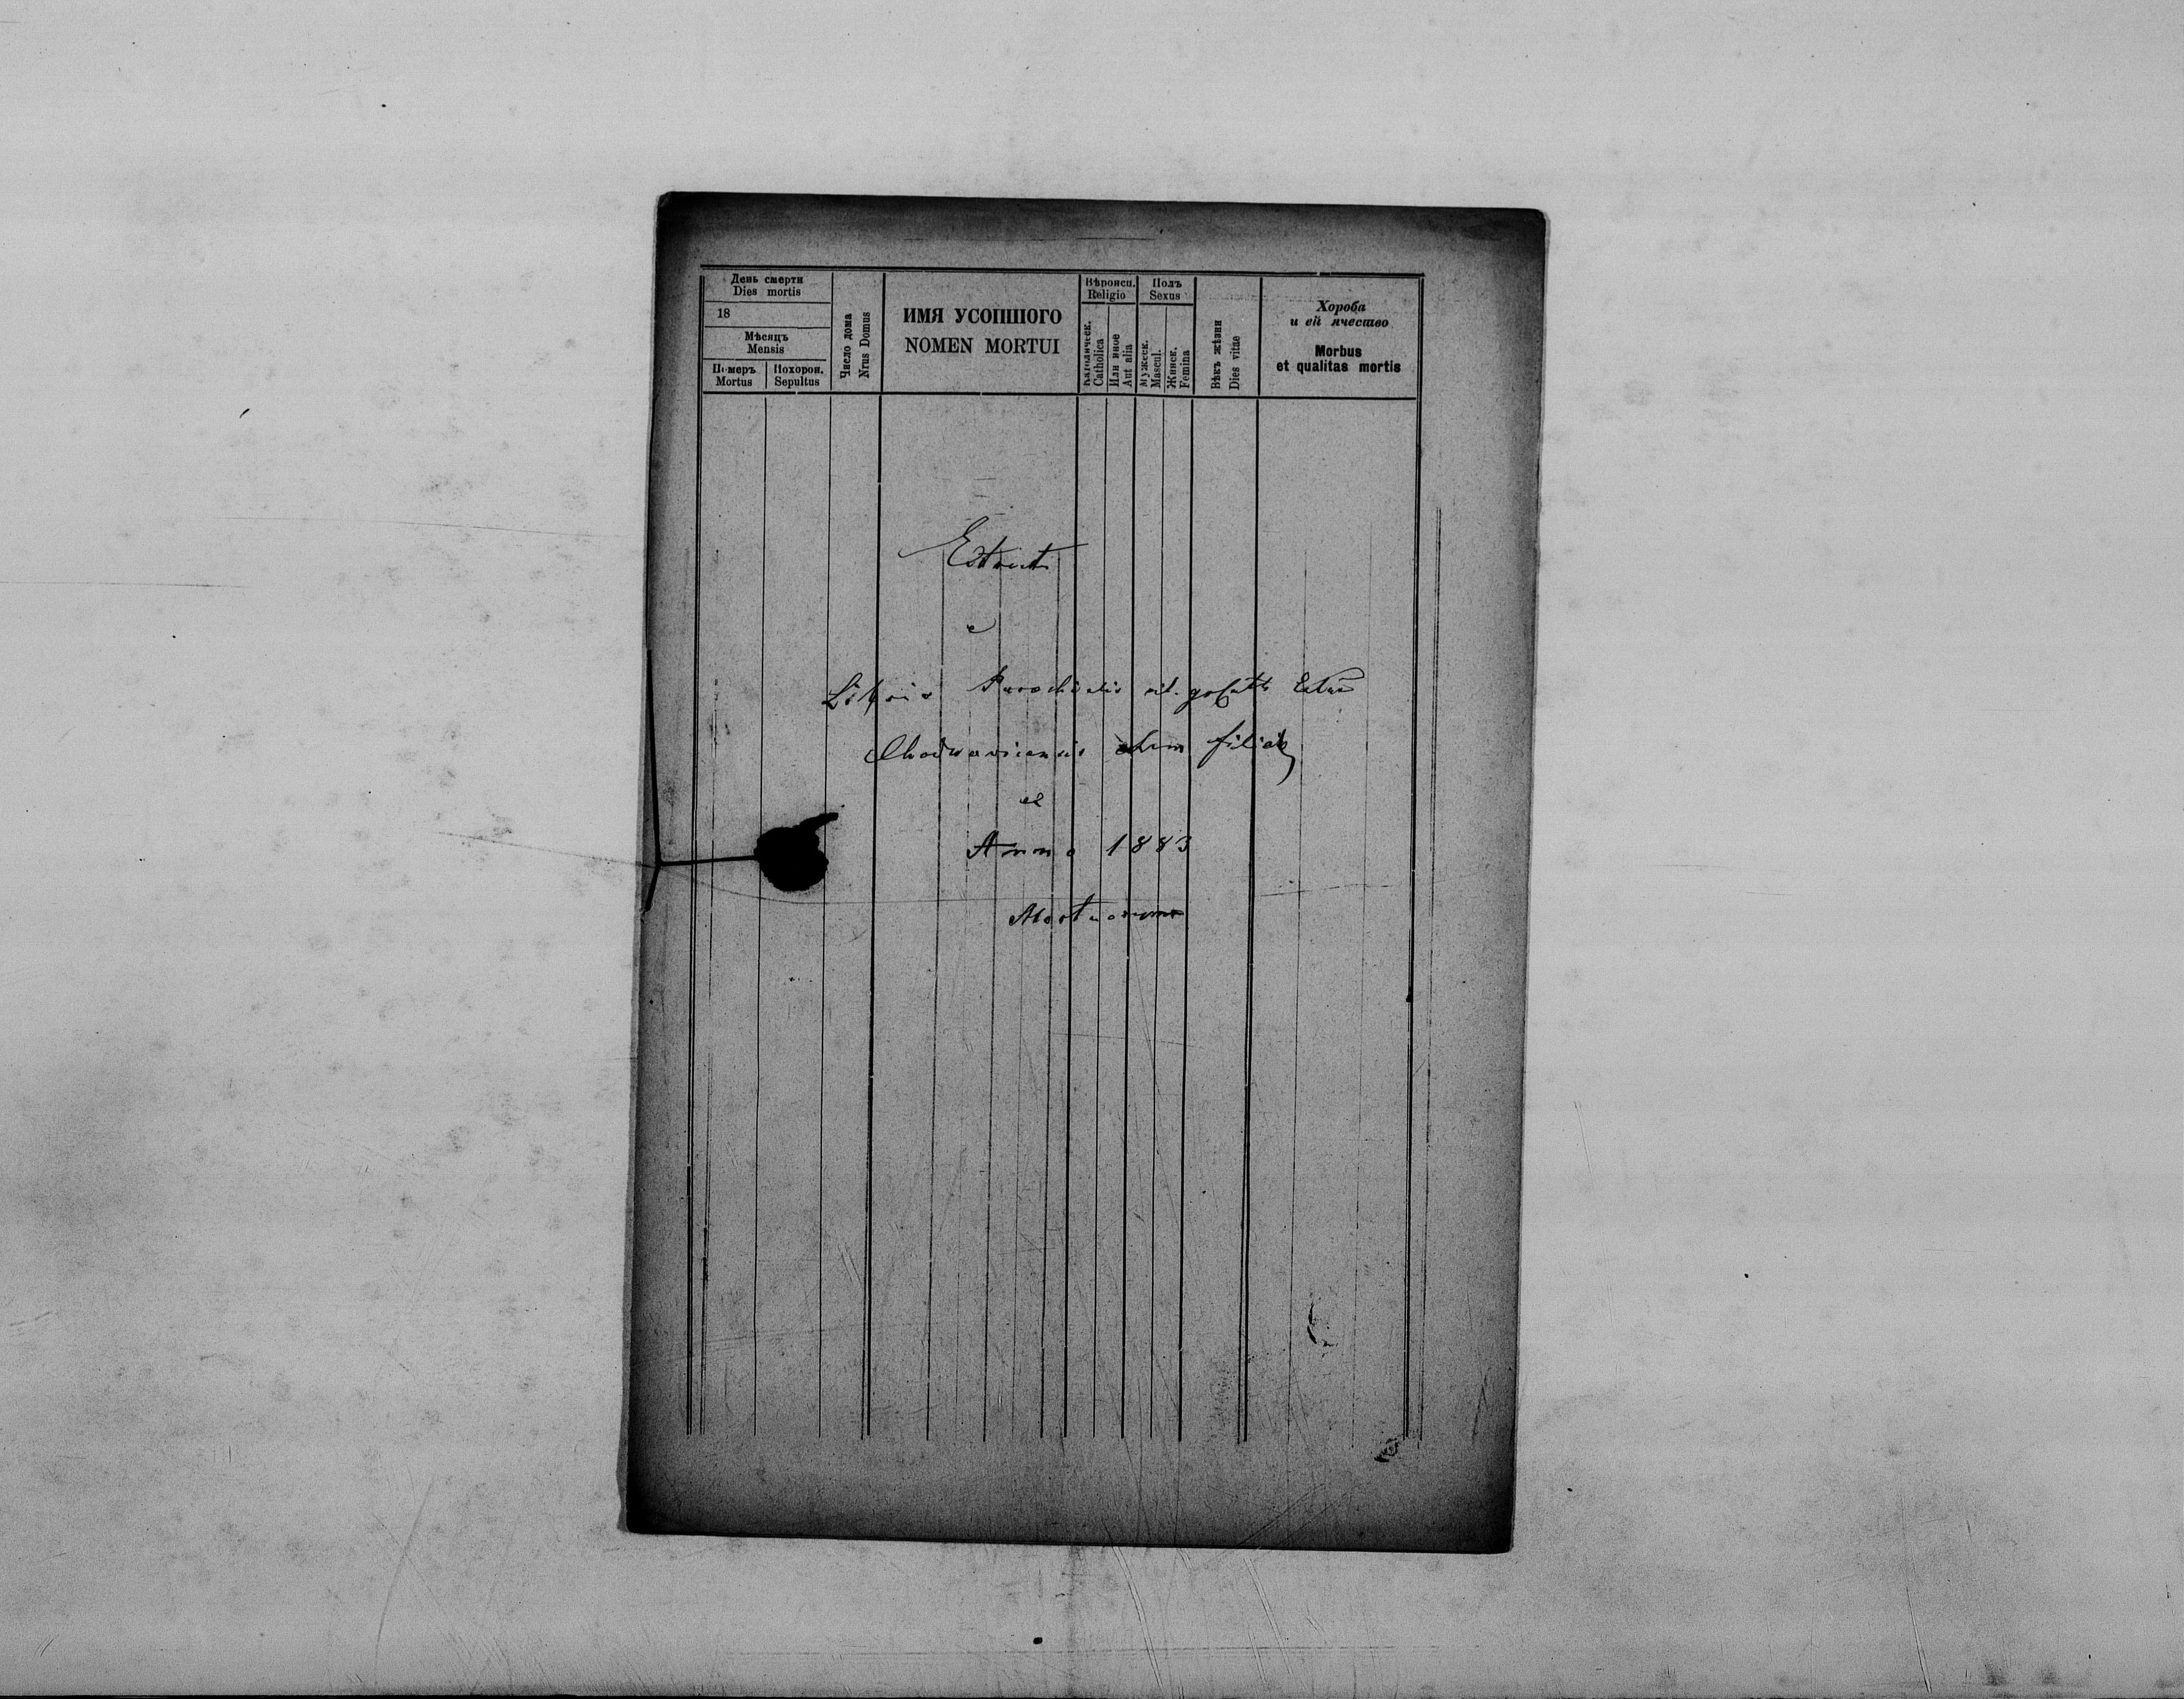 День смерти
Dies mortis
18
Мѣсяцъ
Mensis
Померъ
Mortus
Похорон.
Sepultus
Число дома
Nrus Domus
ИМЯ УСОПШОГО
NOMEN MORTUI
Вѣроисп.
Religio
Католическ.
Catholica
Или иное
Aut alia
Полъ
Sexus
Мужеск.
Mascul.
Женск.
Femina
Вѣкъ жѣзни
Dies vitae
Хороба
и ей ячество
Morbus
et qualitas mortis
e
Libris Parochialis rit.
filiali
Anno 1883
Mortuorum